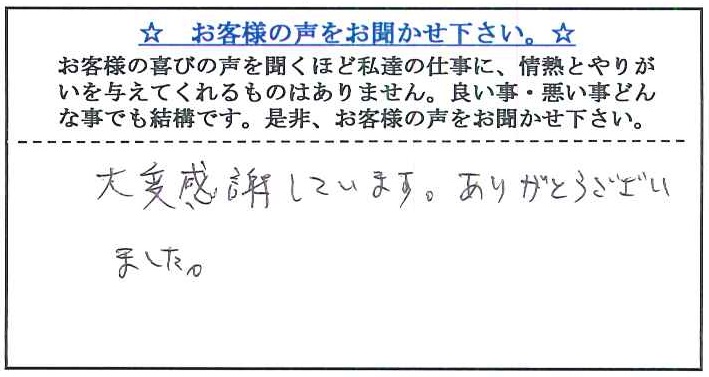 ☆ お客様の声をお聞かせ下さい。☆
お客様の喜びの声を聞くほど私達の仕事に、情熱とやりが
いを与えてくれるものはありません。良い事・悪い事どん
な事でも結構です。是非、お客様の声をお聞かせ下さい。
大変感謝しています。ありがとうござい
ました。